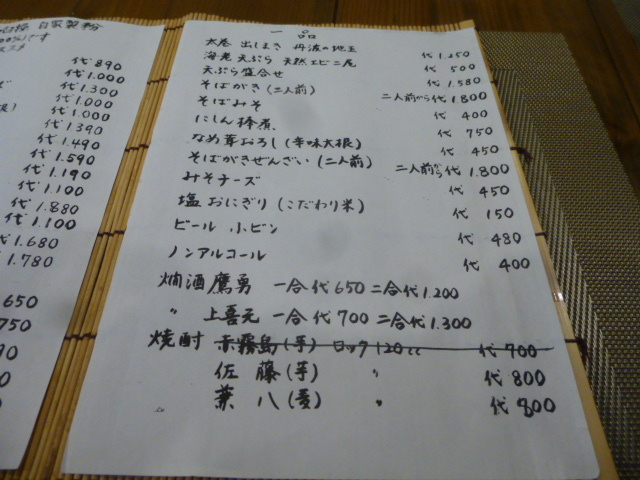 自家製粉
代890
代1.000
代1.300
代1.000
代1.000
代1.390
代1.490
代1.590
代1.190
代1.100
代1.880
代1.100
代1.680
代1.780
650
750
一品
太巻 出しまき 丹波の地玉 代1.250
海老 天ぷら 天然エビ二尾 代 500
天ぷら盛合せ 代1.580
そばがき(二人前) 二人前から代1.800
そばみそ 代 400
にしん棒煮 代 750
なめ茸おろし(辛味大根) 代 450
そばがきぜんざい(二人前) 二人前から代1.800
みそチーズ 代 450
塩おにぎり(こだわり米) 代 150
ビール 小ビン 代 480
ノンアルコール 代 400
燗酒 鷹勇 一合代650 二合代1.200
〃 上喜元 一合代700 二合代1.300
焼酎 赤霧島(芋) ロック120cc 代700
佐藤(芋) 〃 代800
兼八(麦) 〃 代800